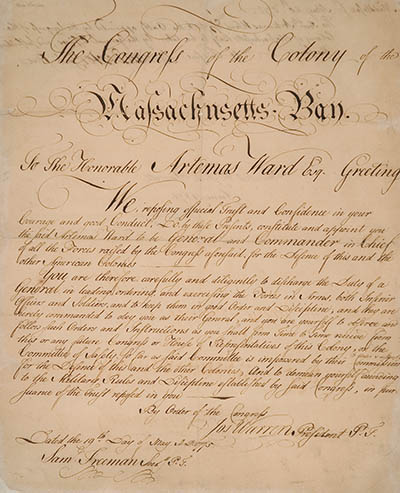 The Congress of the Colony of the
Massachusetts-Bay.
To The Honorable Artemas Ward Esq. Greeting
We, reposing especial Trust and Confidence in your
Courage and good Conduct, Do, by these Presents, constitute and appoint you
the said Artemas Ward to be General and Commander in Chief
of all the Forces raised by the Congress aforesaid, for the Defence of this and the
other American Colonies.
You, are therefore, carefully and diligently to discharge the Duty of a
General in leading, ordering and exercising the Forces in Arms, both Inferior
Officers and Soldiers, and to keep them in good Order and Discipline, and they are
hereby commanded to obey you as their General, and you are yourself to observe and
follow such Orders and Instructions as you shall from Time to Time receive from
this or any future Congress or House of Representatives of this Colony, or the
Committee of Safety, so far as said Committee is impowered by their Commission
for the Defence of this and the other Colonies, and to demean yourself according
to the Military Rules and Discipline established by said Congress, in pur-
suance of the trust reposed in you
By Order of the Congress
Jos Warren President P. T.
Dated the 19th Day of May AD 1775
Saml Freeman Secy P. T.